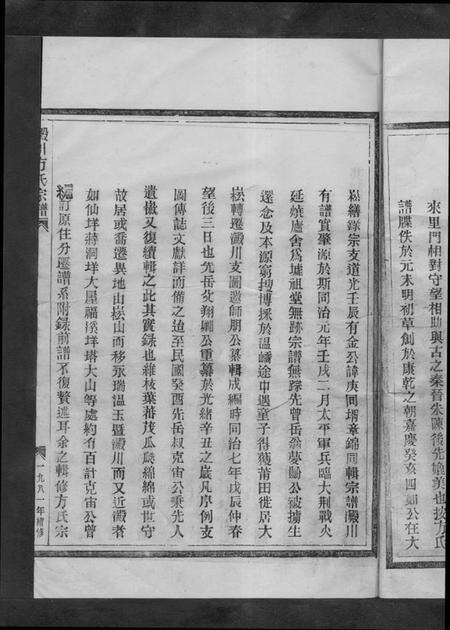 來里門相對守望相助與古之秦晉朱陳後先媲美也按方氏
譜牒佚於元末明初草創於康乾之朝嘉慶癸亥四如公在大
崧繕錄宗支道光壬辰有金公諱庚同壻章錦同輯宗譜㵎川
有譜實肇源於斯同治元年壬戌二月太平軍兵臨大荆戰火
延燒廬舍爲墟祖堂無跡宗譜無踪先曾岳翁夢勵公被擄生
還念及本源窮搜博採於溫嶠途中遇童子得獲莆田徙居大
崧轉遷㵎川支圖邀師朋公纂輯成編時同治七年戊辰仲春
望後三日也先岳父翔颺公重纂於光緒辛丑之歲凡序例支
圖傳誌文獻詳而備之迨至民國癸酉先岳叔克宙公秉先人
遺檄又復續輯之此其實錄也雖枝葉蕃茂瓜瓞綿綿或世守
故居或喬遷異地山崧山而移永瑞溫玉曁㵎川而又近㵎者
如仙垟蔣洞垟大屋福溪垟塔大山等處約有百計克宙公曾
編訂原住分遷譜系附錄前譜不復贅述耳余之輯修方氏宗
川方氏宗譜
一九八一年續修